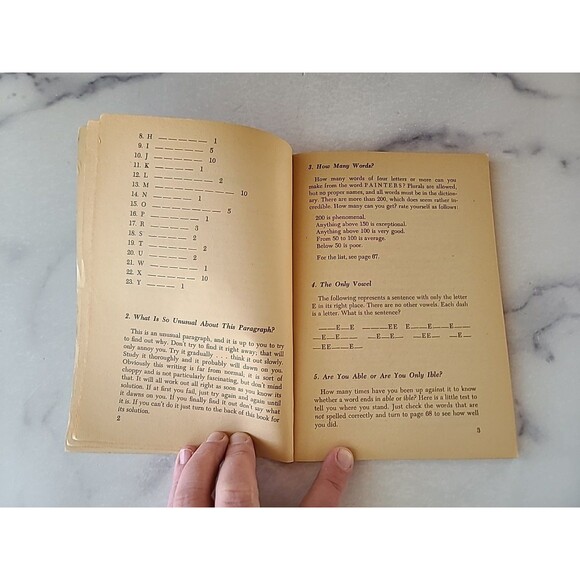 8. H — — — — — 1
9. I — — — — 5
10. J — — — — — 10
11. K — — — — 1
12. L — — — — — — 2
13. M — — — — — — — 10
14. N — — — — 1
15. O — — — — — — 5
16. P — — — — — 1
17. R — — — — 3
18. S — — — — — 2
19. T — — — —
20. U — — — — — 2
21. W — — — — 1
22. X — — — — — 10
23. Y — — — 1
2. What Is So Unusual About This Paragraph?
This is an unusual paragraph, and it is up to you to try
to find out why. Don't try to find it right away; that will
only annoy you. Try it gradually . . . think it out slowly.
Study it thoroughly and it probably will dawn on you.
Obviously this writing is far from normal, it is sort of
choppy and is not particularly fascinating, but don't mind
that. It will all work out all right as soon as you know its
solution. If at first you fail, just try again and again until
it dawns on you. If you finally find it out don't say what
it is. If you can't do it just turn to the back of this book for
its solution.
2
3. How Many Words?
How many words of four letters or more can you
make from the word PAINTERS? Plurals are allowed,
but no proper names, and all words must be in the diction-
ary. There are more than 200, which does seem rather in-
credible. How many can you get? rate yourself as follows:
200 is phenomenal.
Anything above 150 is exceptional.
Anything above 100 is very good.
From 50 to 100 is average.
Below 50 is poor.
For the list, see page 67.
4. The Only Vowel
The following represents a sentence with only the letter
E in its right place. There are no other vowels. Each dash
is a letter. What is the sentence?
— — E — E — — — — EE E — — — E — — E — —
— E — — E — — E — — E — — E — — E
— EE — — — E — —
5. Are You Able or Are You Only Ible?
How many times have you been up against it to know
whether a word ends in able or ible? Here is a little test to
tell you where you stand. Just check the words that are
not spelled correctly and turn to page 68 to see how well
you did.
3